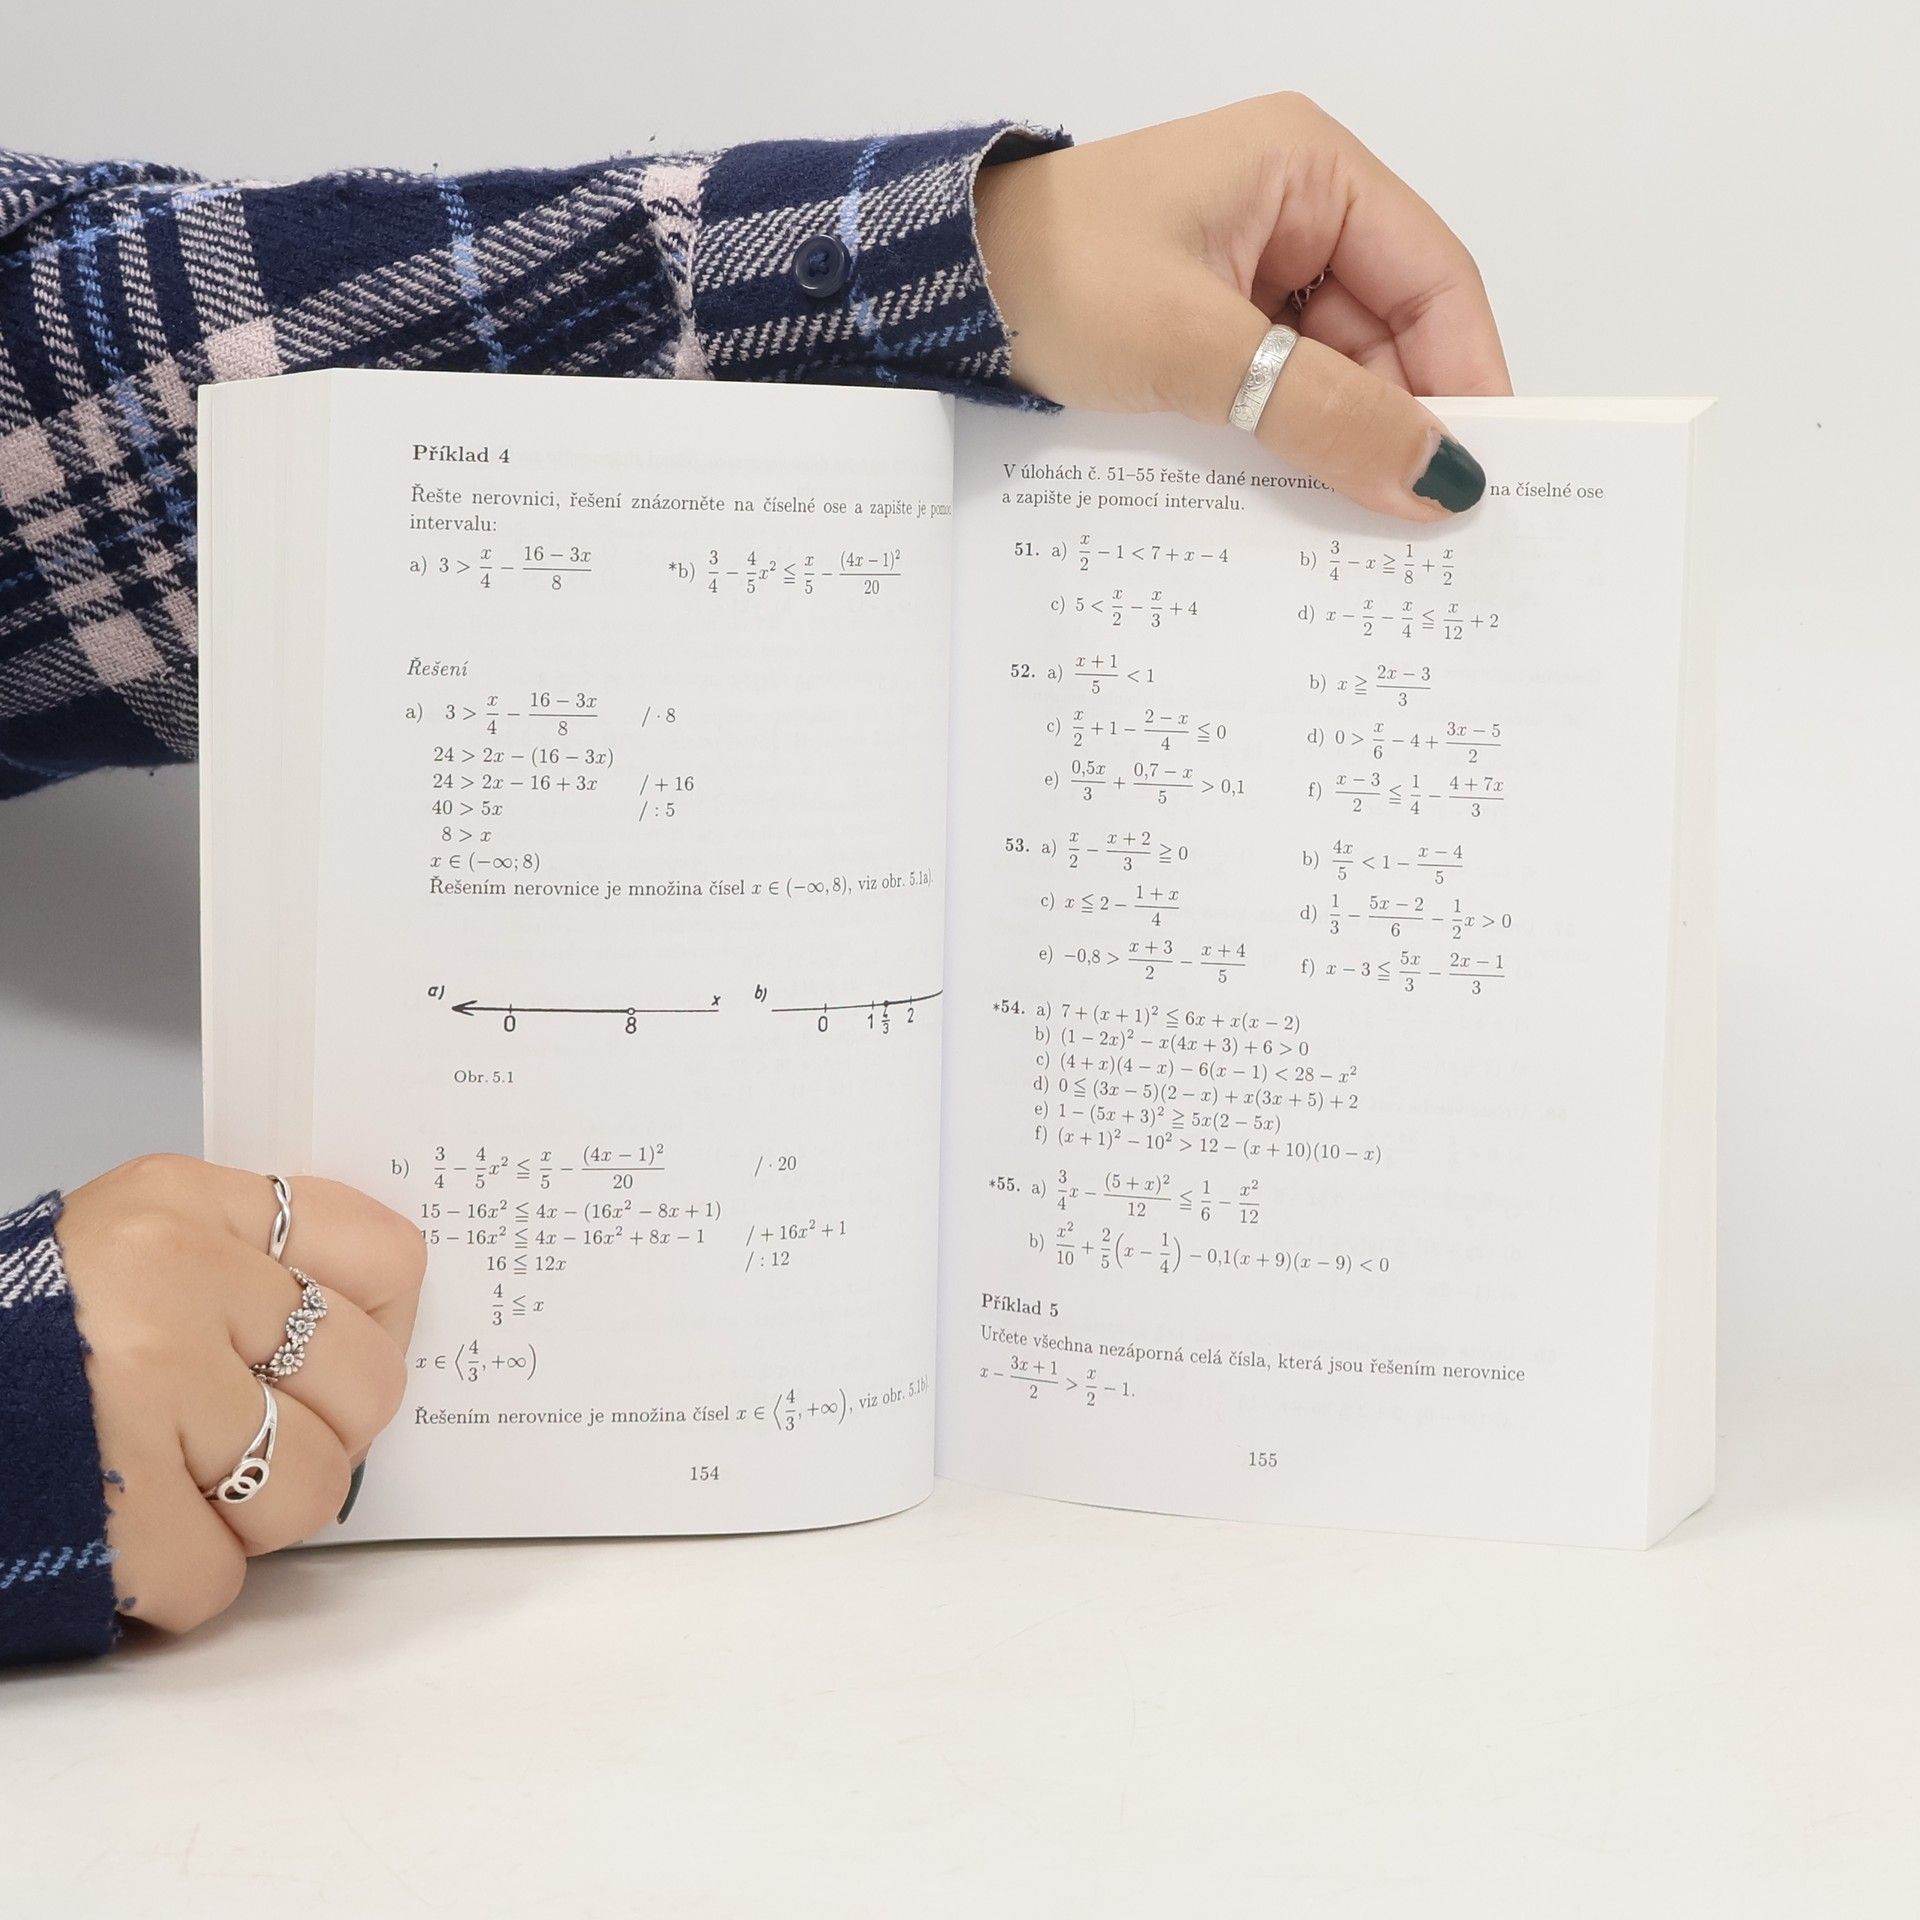 Příklad 4
Řešte nerovnici, řešení znázorněte na číselné ose a zapište je
intervalu:
a) 3 > x/4 − (16 − 3x)/8 *b) 3/4 − 4/5 x² ≦ x/5 − (4x − 1)²/20
Řešení
a) 3 > x/4 − (16 − 3x)/8 / · 8
24 > 2x − (16 − 3x)
24 > 2x − 16 + 3x / + 16
40 > 5x / : 5
8 > x
x ∈ (−∞; 8)
Řešením nerovnice je množina čísel x ∈ (−∞, 8), viz obr. 5.1a).
a) 0 8 x b) 0 1 4/3 2
Obr. 5.1
b) 3/4 − 4/5 x² ≦ x/5 − (4x − 1)²/20 / · 20
15 − 16x² ≦ 4x − (16x² − 8x + 1)
15 − 16x² ≦ 4x − 16x² + 8x − 1 / + 16x² + 1
16 ≦ 12x / : 12
4/3 ≦ x
x ∈ ⟨4/3, +∞)
Řešením nerovnice je množina čísel x ∈ ⟨4/3, +∞), viz obr. 5.1b).
154
V úlohách č. 51–55 řešte dané nerovnice, na číselné ose
a zapište je pomocí intervalu.
51. a) x/2 − 1 < 7 + x − 4 b) 3/4 − x ≧ 1/8 + x/2
c) 5 < x/2 − x/3 + 4 d) x − x/2 − x/4 ≦ x/12 + 2
52. a) (x + 1)/5 < 1 b) x ≧ (2x − 3)/3
c) x/2 + 1 − (2 − x)/4 ≦ 0 d) 0 > x/6 − 4 + (3x − 5)/2
e) 0,5x/3 + (0,7 − x)/5 > 0,1 f) (x − 3)/2 ≦ 1/4 − (4 + 7x)/3
53. a) x/2 − (x + 2)/3 ≧ 0 b) 4x/5 < 1 − (x − 4)/5
c) x ≦ 2 − (1 + x)/4 d) 1/3 − (5x − 2)/6 − 1/2 x > 0
e) −0,8 > (x + 3)/2 − (x + 4)/5 f) x − 3 ≦ 5x/3 − (2x − 1)/3
*54. a) 7 + (x + 1)² ≦ 6x + x(x − 2)
b) (1 − 2x)² − x(4x + 3) + 6 > 0
c) (4 + x)(4 − x) − 6(x − 1) < 28 − x²
d) 0 ≦ (3x − 5)(2 − x) + x(3x + 5) + 2
e) 1 − (5x + 3)² ≧ 5x(2 − 5x)
f) (x + 1)² − 10² > 12 − (x + 10)(10 − x)
*55. a) 3/4 x − (5 + x)²/12 ≦ 1/6 − x²/12
b) x²/10 + 2/5 (x − 1/4) − 0,1(x + 9)(x − 9) < 0
Příklad 5
Určete všechna nezáporná celá čísla, která jsou řešením nerovnice
x − (3x + 1)/2 > x/2 − 1.
155